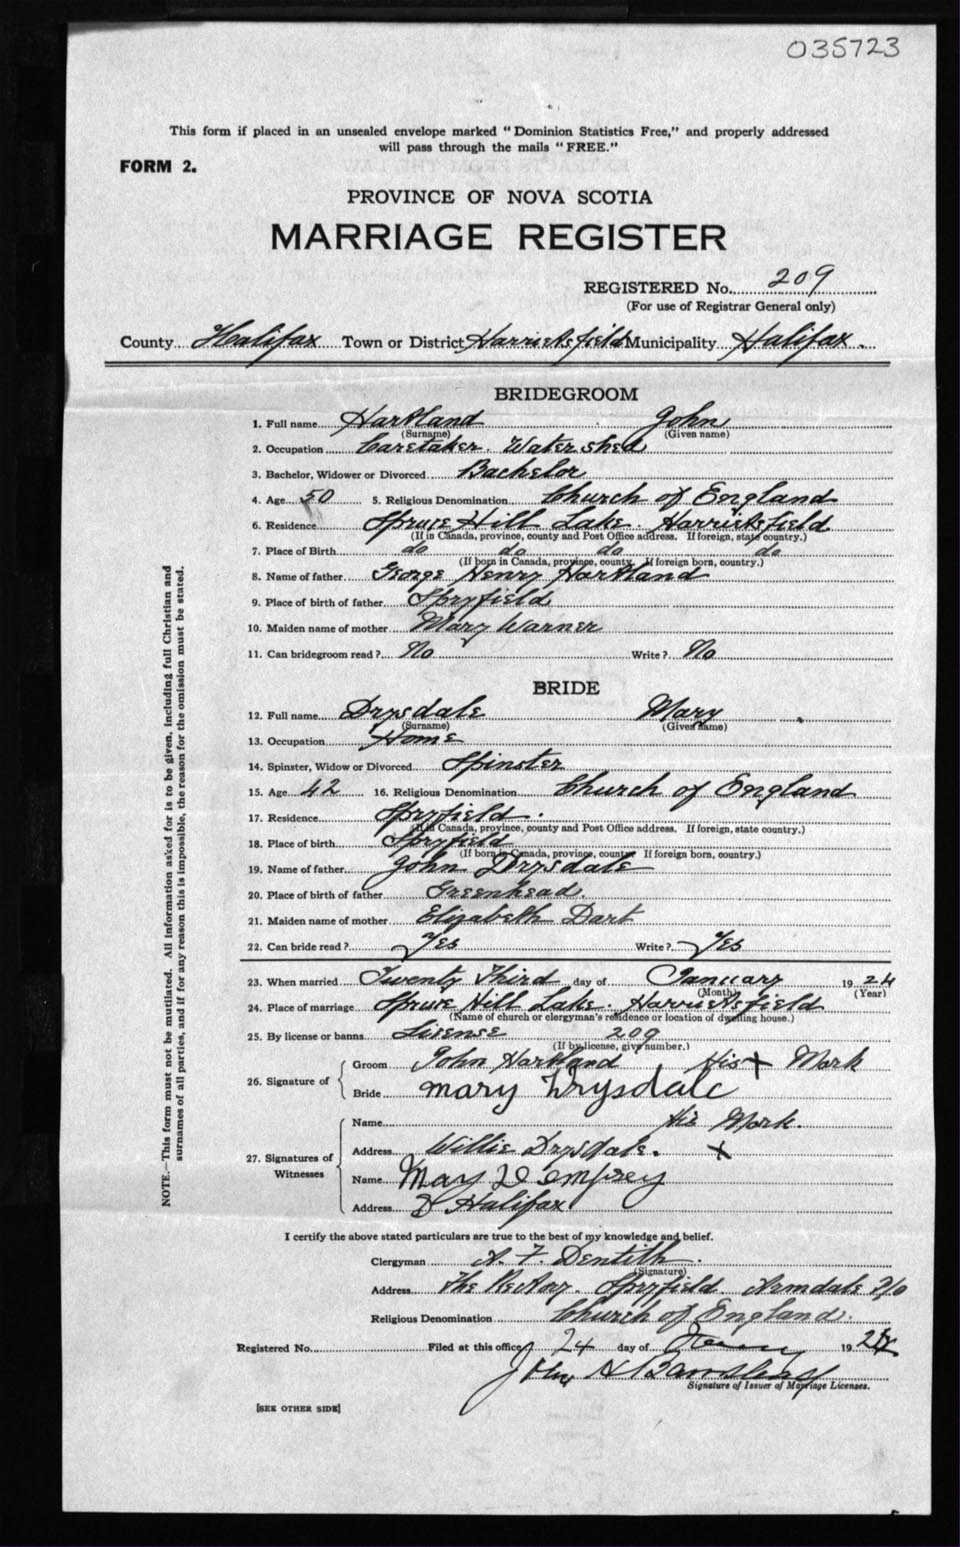 035723
This form if placed in an unsealed envelope marked "Dominion Statistics Free," and properly addressed
will pass through the mails "FREE."
FORM 2.
PROVINCE OF NOVA SCOTIA
MARRIAGE REGISTER
REGISTERED No. 209
(For use of Registrar General only)
County Halifax Town or District Harrietsfield Municipality Halifax
BRIDEGROOM
1. Full name Hartland John
(Surname) (Given name)
2. Occupation Caretaker. Water shed
3. Bachelor, Widower or Divorced Bachelor
4. Age 50 5. Religious Denomination Church of England
6. Residence Spruce Hill Lake. Harrietsfield
(If in Canada, province, county and Post Office address. If foreign, state country.)
7. Place of Birth do do do do
(If born in Canada, province, county. If foreign born, country.)
8. Name of father George Henry Hartland
9. Place of birth of father Spryfield
10. Maiden name of mother Mary Warner
11. Can bridegroom read? No Write? No
BRIDE
12. Full name Drysdale Mary
(Surname) (Given name)
13. Occupation Home
14. Spinster, Widow or Divorced Spinster
15. Age 42 16. Religious Denomination Church of England
17. Residence Spryfield.
(If in Canada, province, county and Post Office address. If foreign, state country.)
18. Place of birth Spryfield
(If born in Canada, province, county If foreign born, country.)
19. Name of father John Drysdale
20. Place of birth of father Greenhead.
21. Maiden name of mother Elizabeth Dart
22. Can bride read? Yes Write? Yes
23. When married Twenty Third day of January 1924
(Month) (Year)
24. Place of marriage Spruce Hill Lake. Harrietsfield
(Name of church or clergyman's residence or location of dwelling house.)
25. By license or banns License 209
(If by license, give number.)
26. Signature of
Groom John Hartland His X Mark
Bride Mary Drysdale
27. Signatures of Witnesses
Name His Mark.
Address Willie Drysdale. X
Name May Dempsey
Address Halifax
I certify the above stated particulars are true to the best of my knowledge and belief.
Clergyman A. F. Dentith.
(Signature)
Address The Rectory. Spryfield. Armdale P/o
Religious Denomination Church of England.
Registered No. Filed at this office 24 day of 1924
John
Signature of Issuer of Marriage Licenses.
[SEE OTHER SIDE]
NOTE.—This form must not be mutilated. All information asked for is to be given, including full Christian and
surnames of all parties, and if for any reason this is impossible, the reason for the omission must be stated.